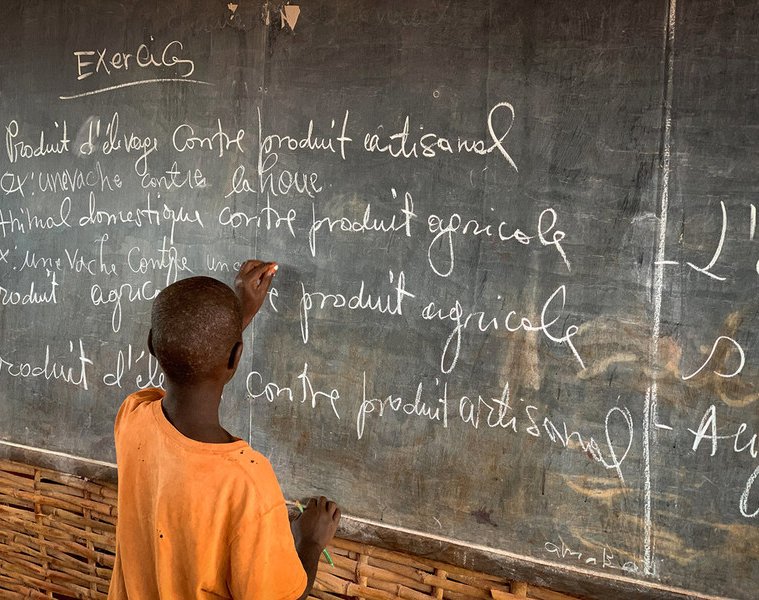 Exercices
Produit d'élevage contre produit artisanal
ex: une vache contre la houe.
Animal domestique contre produit agricole
ex: une vache contre un
produit agric e produit agricole
produit d'éle contre produit artisanal
- L'
s
- Au